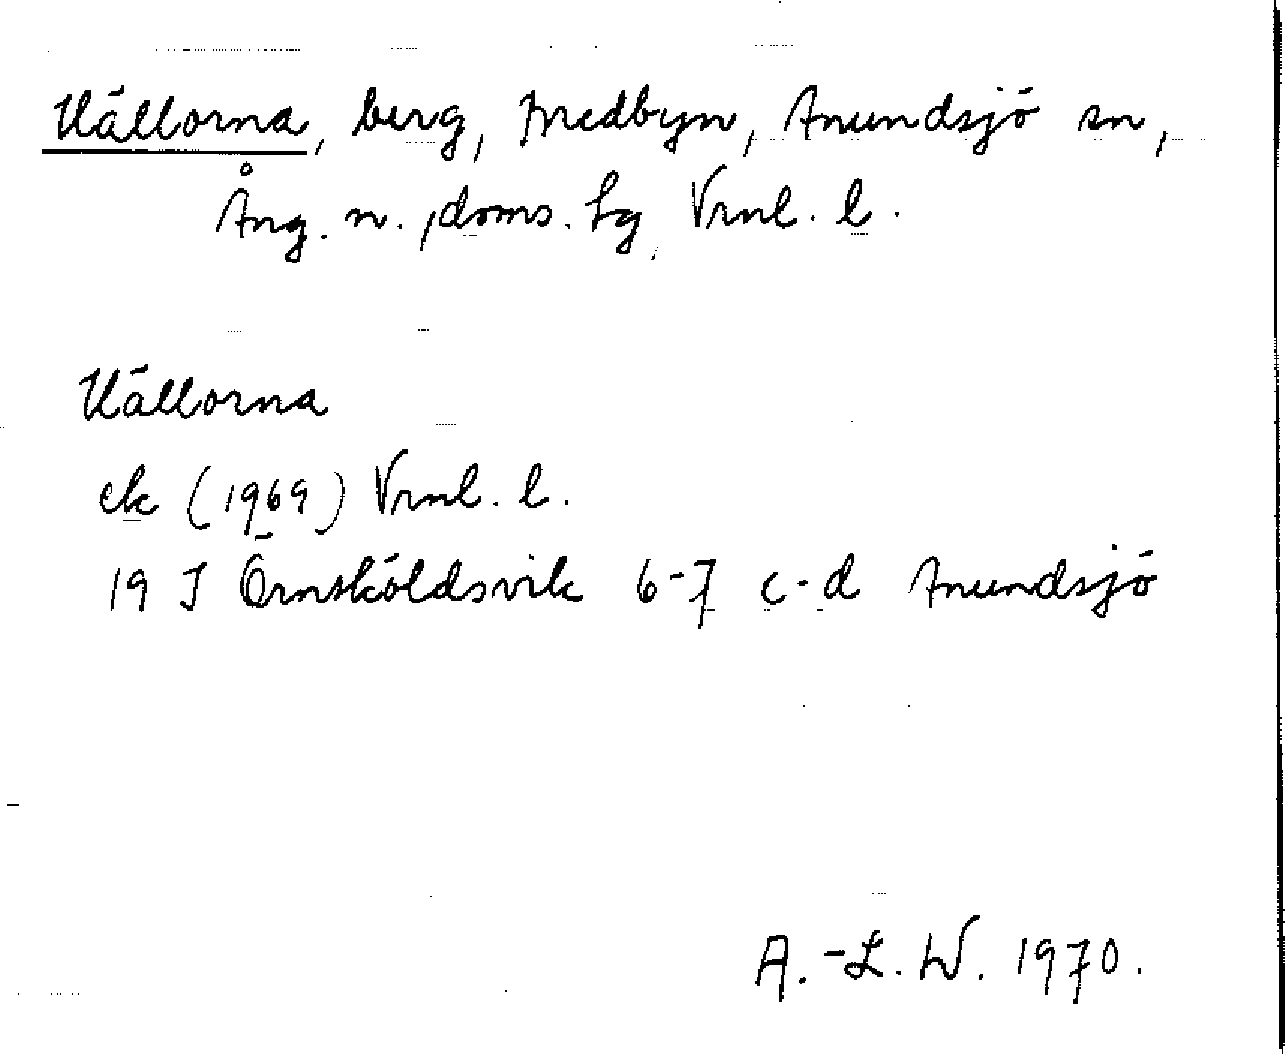 Hällorna, berg, Medbyn, Anundsjö sn,
Ång. n. doms. tg, Vrnl. l.
Hällorna
ek (1969) Vrnl. l.
19 J Örnsköldsvik 6-7 c-d Anundsjö
A.-L. W. 1970.